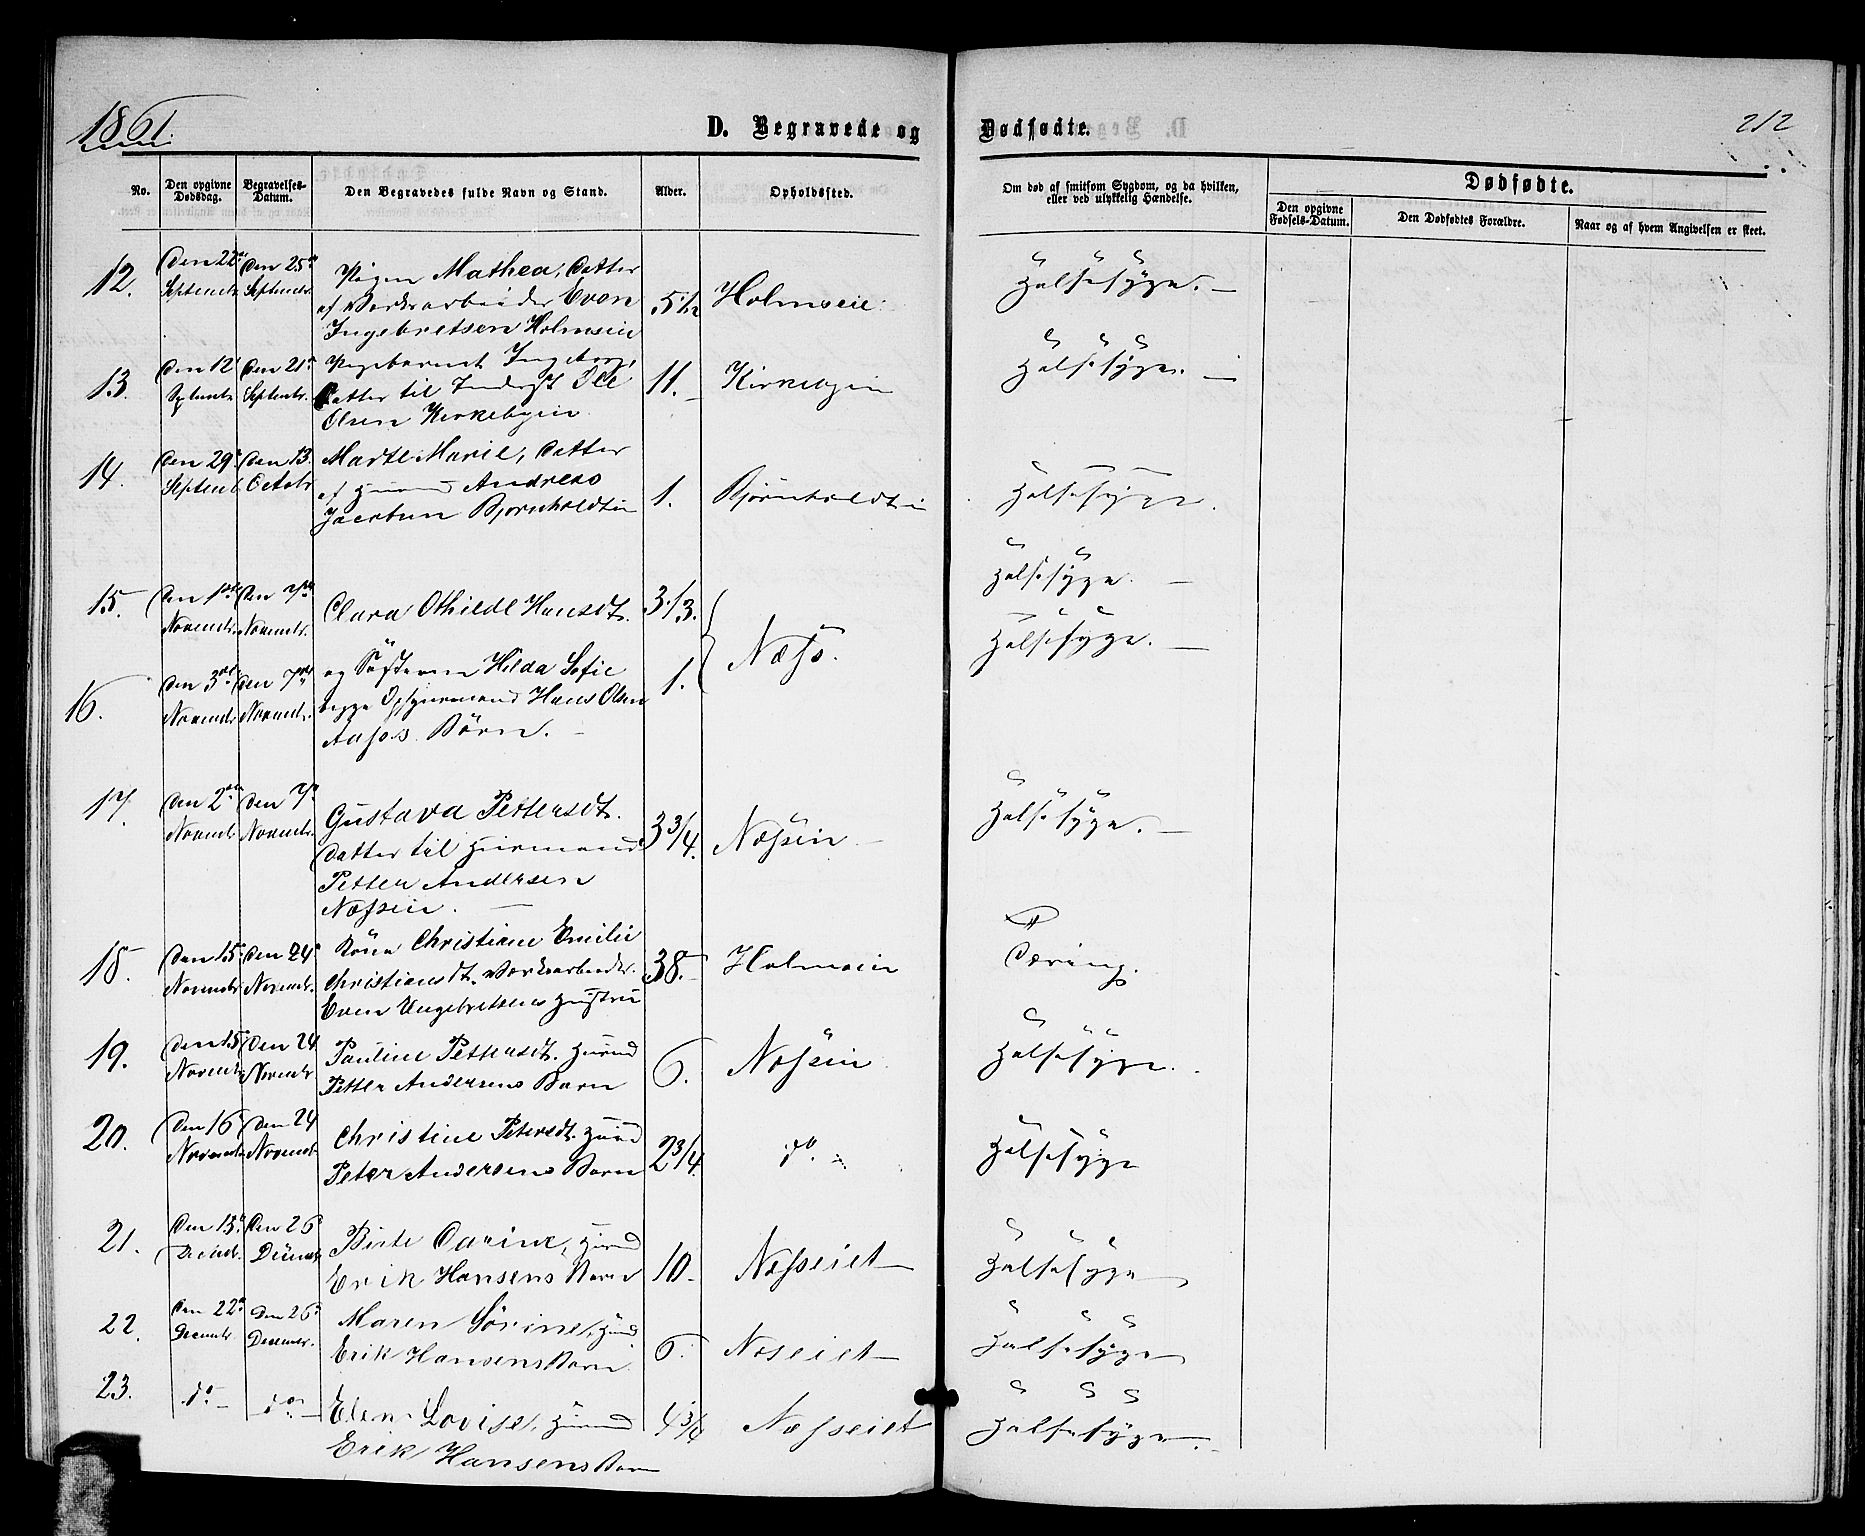 1861.
D. Begravede og Dødfødte.
212
No.
Den opgivne Dødsdag.
Begravelses-Datum.
Den Begravedes fulde Navn og Stand.
Alder.
Opholdssted.
Om død af smitsom Sygdom, og da hvilken, eller ved ulykkelig Hændelse.
Dødfødte.
Den opgivne Fødsels-Datum.
Den Dødfødtes Forældre.
Naar og af hvem Angivelsen er skeet.
12.
Den 22de Septembr
Den 25de Septembr
Pigen Mathea, Datter
af Værksarbeider Even
Ingebretsen Holmseie
5 1/12
Holmseie
Halssyge.
13.
Den 12
Den 21de Septembr.
Pigebarnet Ingeborg,
Datter til Ole
Olsen Kirkebyeie
11.
Kirkebyeie
Halssyge.
14.
Den 29de Septemb.
Den 13. Octobr
Marte Marie, Datter
af Huusmd Andreas
Jacobsen Bjørnholdteie
1.
Bjørnholdteie
Halssyge.
15.
Den 1ste Novembr.
Den 7de Novembr.
Clara Othilde Hansdt.
3 1/3.
Næss.
Halssyge.
16.
Den 3die Novembr
Den 7de Novembr.
og Søsteren Hilda Sofie
begge Opsynsmand Hans Olsen
Børn.
1.
Halssyge.
17.
Den 2den Novembr
Den 7de Novembr.
Gustava Pettersdt.
Datter til Huusmand
Petter Andersen
Næsseie.
3 3/4.
Næsseie
Halssyge.
18.
Den 15de Novembr
Den 24de Novembr.
Kone Christiane Emilie
Christiansdt. Værksarbeider
Even Engebretsens Hustru
38.
Holmseie
Tæring.
19.
Den 15 Novembr
Den 24 Novembr
Pauline Pettersdt. Huusmd
Petter Andersens Barn
6.
Næsseie
Halssyge.
20.
Den 16de Novembr
Den 24 Novembr
Christine Petersdt. Huusmd
Peter Andersens Barn
2 3/4.
do.
Halssyge
21.
Den 13de Decembr.
Den 26 Decembr
Birte Carine, Huusmd
Erik Hansens Barn
10.
Næsseiet
Halssyge
22.
Den 22de Decembr.
Den 26de Decembr.
Maren Sørine, Huusmd
Erik Hansens Barn
6.
Næseiet
Halssyge
23.
do
do
Elen Lovise, Huusmd
Erik Hansens Barn
4 3/4
Næsseiet
Halssyge.